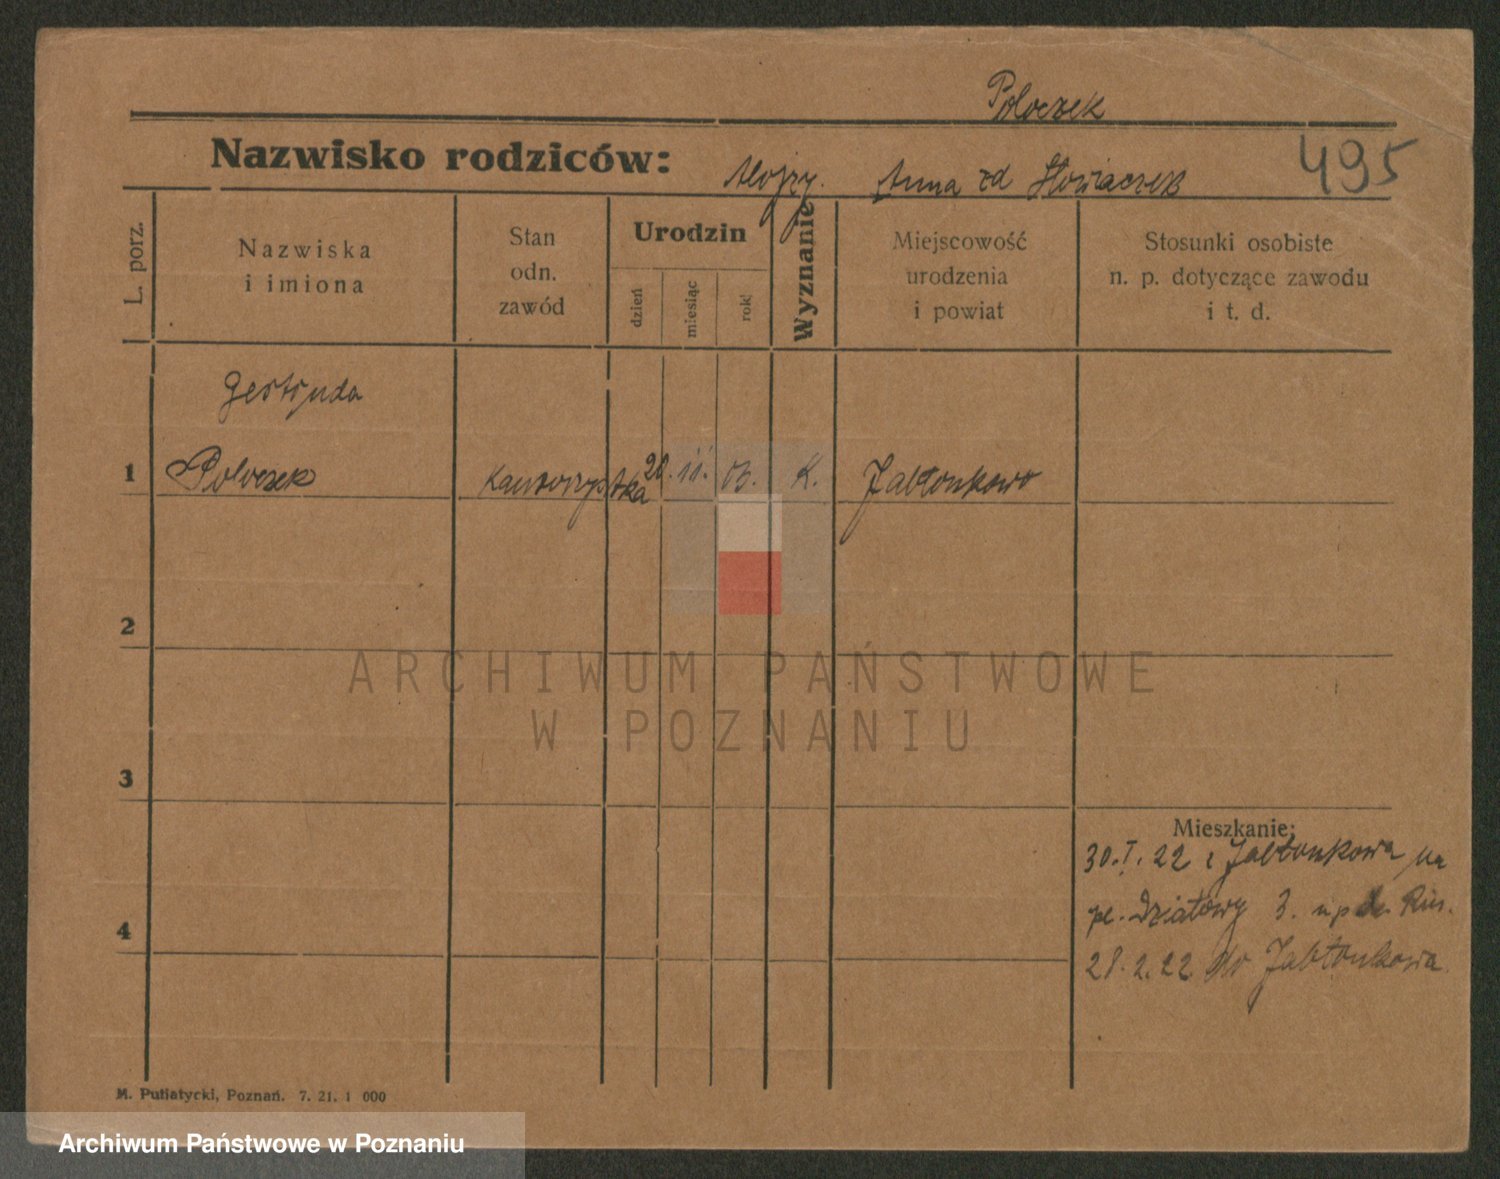 Poloczek
Nazwisko rodziców: Alojzy. Anna zd Słowiaczek
495
L. porz.
Nazwiska
i imiona
Stan
odn.
zawód
Urodzin
dzień
miesiąc
rok
Wyznanie
Miejscowość
urodzenia
i powiat
Stosunki osobiste
n. p. dotyczące zawodu
i t. d.
Gertruda
1 Poloczek kantorzystka 28. 11. 03. K. Jabłonkowo
2
3
4
Mieszkanie:
30. I. 22 z Jabłonkowa na
pl. Działowy 3.
28. 2. 22 do Jabłonkowa
M. Putiatycki, Poznań. 7. 21. 1 000
ARCHIWUM PAŃSTWOWE
W POZNANIU
Archiwum Państwowe w Poznaniu